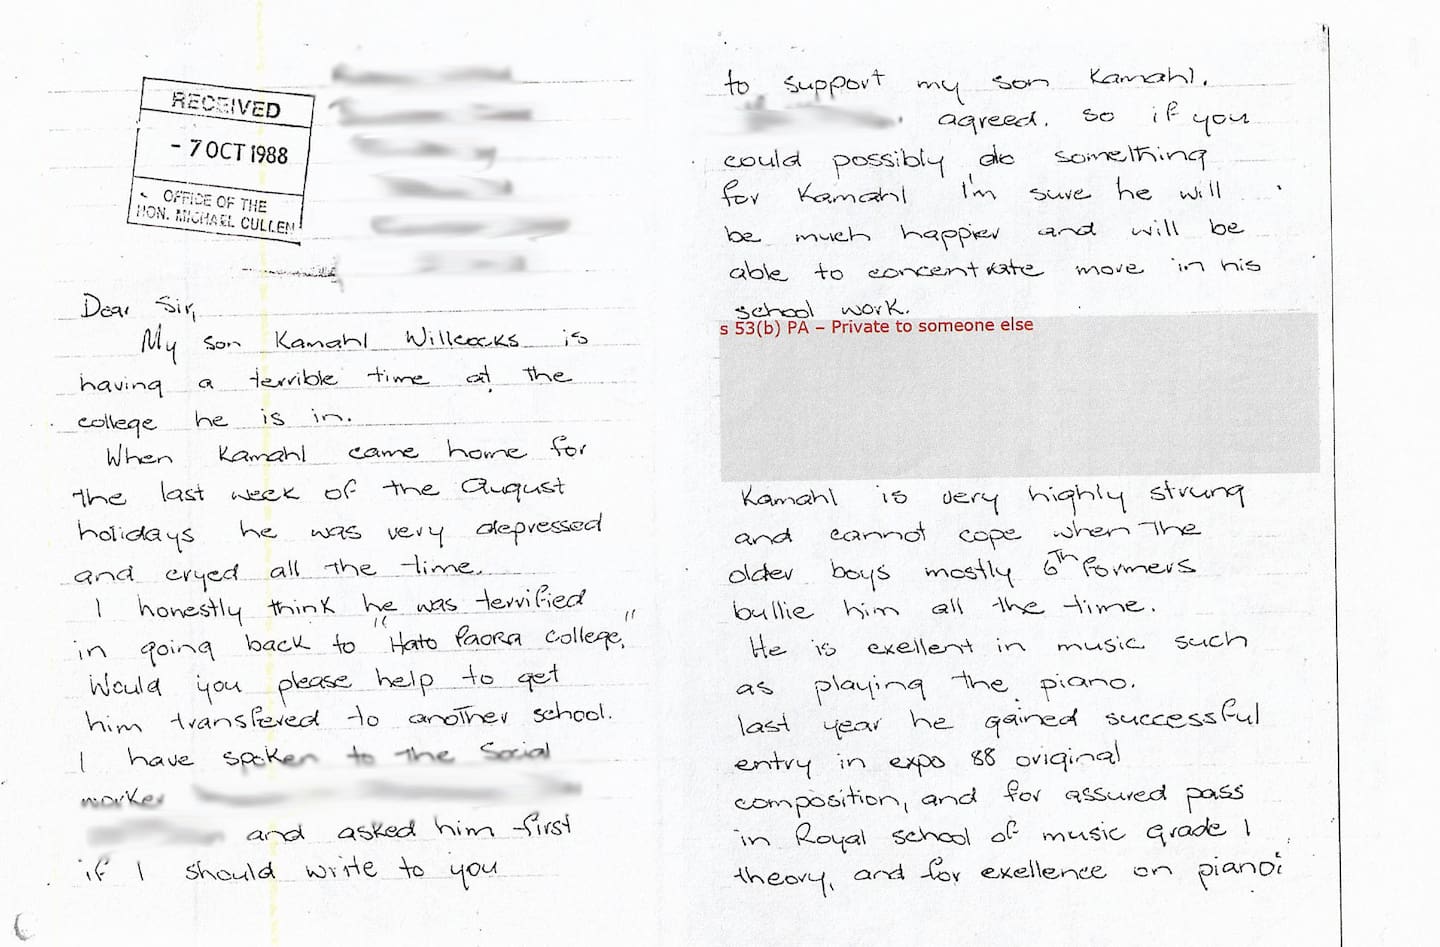 RECEIVED
- 7 OCT 1988
OFFICE OF THE
HON. MICHAEL CULLEN
Dear Sir,
My son Kamahl Willcocks is
having a terrible time at the
college he is in.
When Kamahl came home for
the last week of the August
holidays he was very depressed
and cryed all the time.
I honestly think he was terrified
in going back to "Hato Paora college,"
Would you please help to get
him transfered to another school.
I have spoken to the Social
worker
and asked him first
if I should write to you
to support my son Kamahl.
agreed. so if you
could possibly do something
for Kamahl I'm sure he will
be much happier and will be
able to concentrate more in his
school work.
s 53(b) PA – Private to someone else
Kamahl is very highly strung
and cannot cope when the
older boys mostly 6th formers
bullie him all the time.
He is exellent in music such
as playing the piano.
last year he gained successful
entry in expo 88 original
composition, and for assured pass
in Royal school of music grade 1
theory, and for exellence on piano.